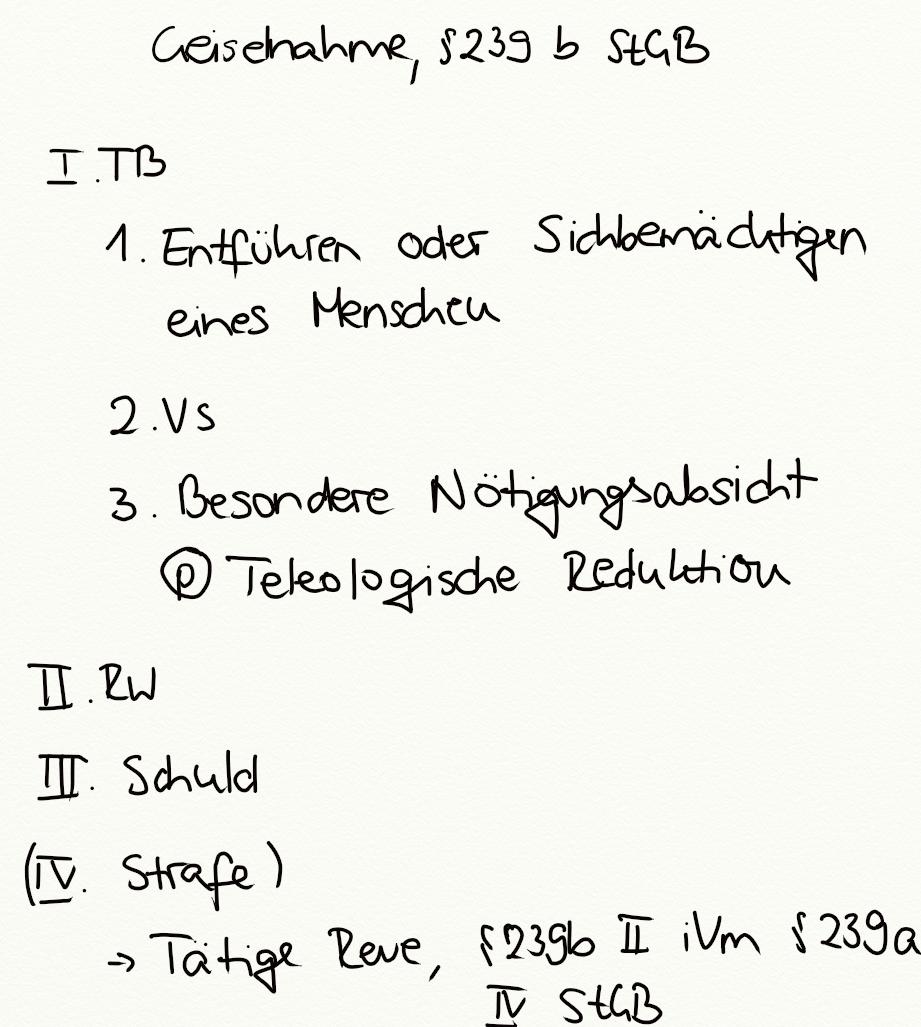 Geiselnahme, § 239 b StGB
I. TB
1. Entführen oder Sichbemächtigen
eines Menschen
2. Vs
3. Besondere Nötigungsabsicht
Ⓟ Teleologische Reduktion
II. RW
III. Schuld
(IV. Strafe)
→ Tätige Reue, § 239b II iVm § 239a
IV StGB